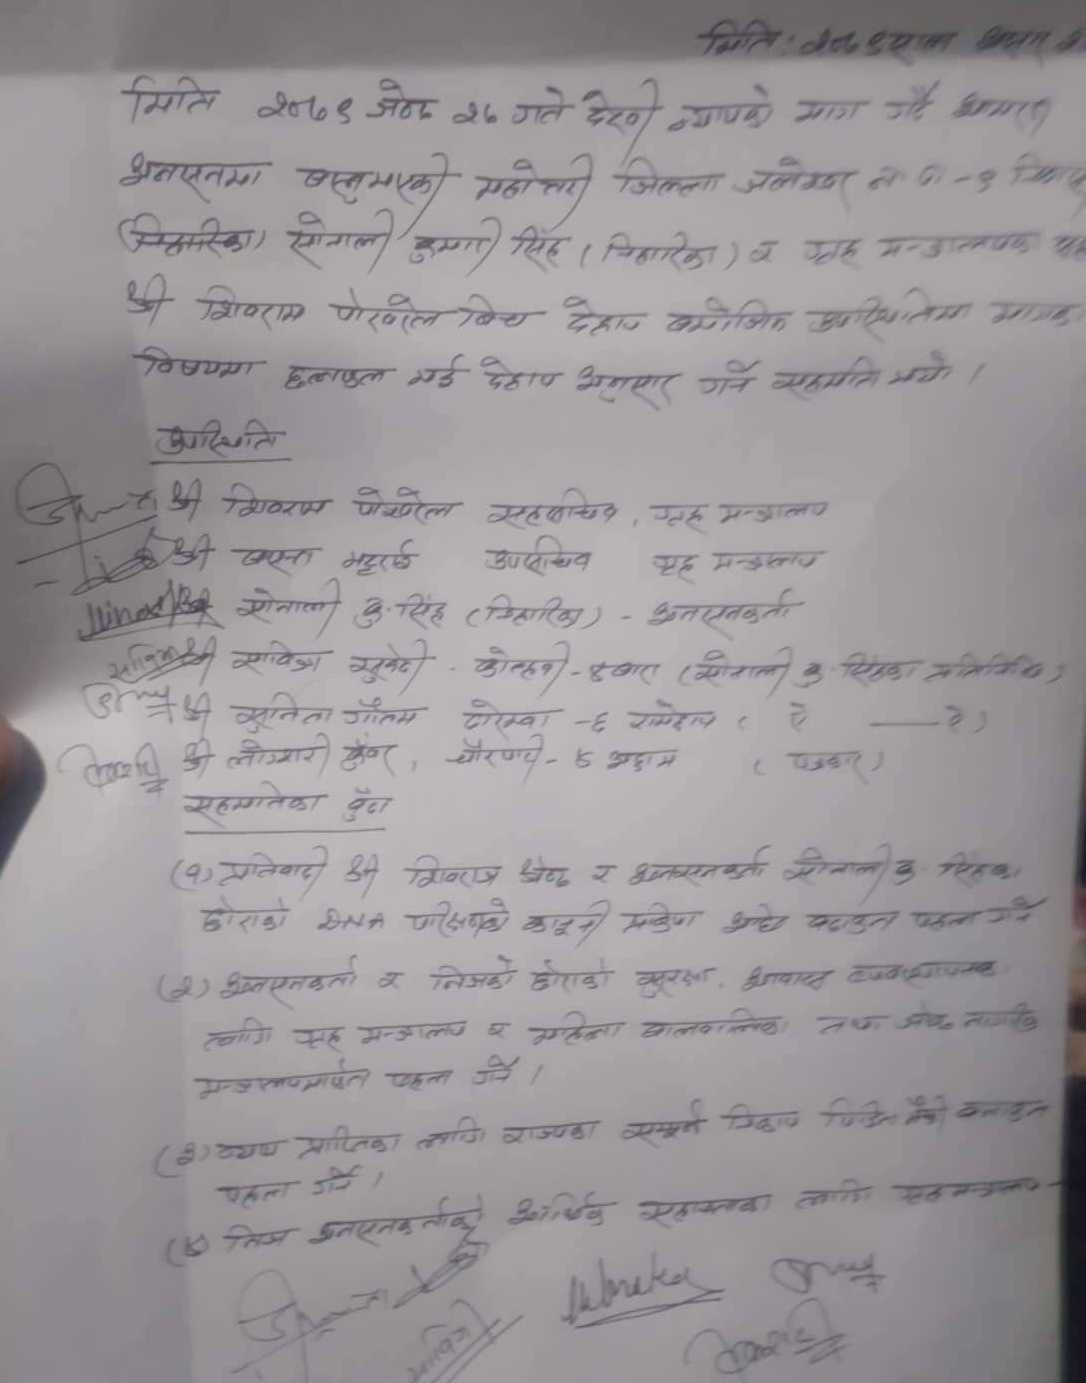 मिति : २०७९ साल असार
मिति २०७९ जेठ २६ गते देखी न्यायको माग गर्दै आमरण
अनसनमा बस्नुभएकी महोत्तरी जिल्ला जलेश्वर न.पा -९
(निहारिका) सोनाली कुमारी सिंह (निहारिका) र गृह मन्त्रालयका सह
श्री शिवराम पोखरेल बिच देहाय बमोजिम उपस्थितिमा
विषयमा छलफल भई देहाय अनुसार गर्ने सहमति भयो ।
उपस्थिति
श्री शिवराम पोखरेल सहसचिव, गृह मन्त्रालय
श्री बसन्त भट्टराई उपसचिव गृह मन्त्रालय
श्री सोनाली कु. सिंह (निहारिका) - अनसनकर्ता
सावित्रा श्री सावित्रा सुवेदी - कोल्हवी - बारा (सोनाली कु. सिंहका प्रतिनिधि)
श्री सुनिता गौतम दोरम्बा -६ रामेछाप ( ऐ —— ऐ )
श्री कुँवर, चौरपाटी - ४ अछाम ( पत्रकार )
सहमतिका बुँदा
(१) प्रतिवादी श्री शिवराज श्रेष्ठ र अनसनकर्ता सोनाली कु. सिंहका
छोराको DNA परिक्षणको कानूनी प्रक्रिया अघि बढाउन पहल गर्ने
(२) अनसनकर्ता र निजको छोराको सुरक्षा, आवास व्यवस्थापनका
लागि गृह मन्त्रालय र महिला बालबालिका तथा जेष्ठ नागरिक
मन्त्रालयमार्फत पहल गर्ने ।
(३) न्याय प्राप्तिका लागि राज्यका सम्पूर्ण निकाय पिडित मैत्री बनाउन
पहल गर्ने ।
(४) निज अनसनकर्ताको आर्थिक सहायताका लागि गृह मन्त्रालय
सावित्रा